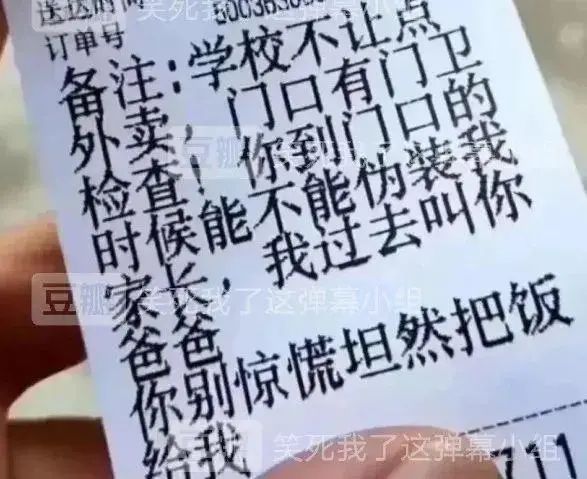 送达时间
订单号
备注:学校不让点
外卖,门口有门卫
检查!你到门口的
时候能不能伪装我
家长,我过去叫你
爸爸
你别惊慌坦然把饭
给我
711
豆瓣 笑死我了这弹幕小组
豆瓣 笑死我了这弹幕小组
豆瓣 笑死我了这弹幕小组